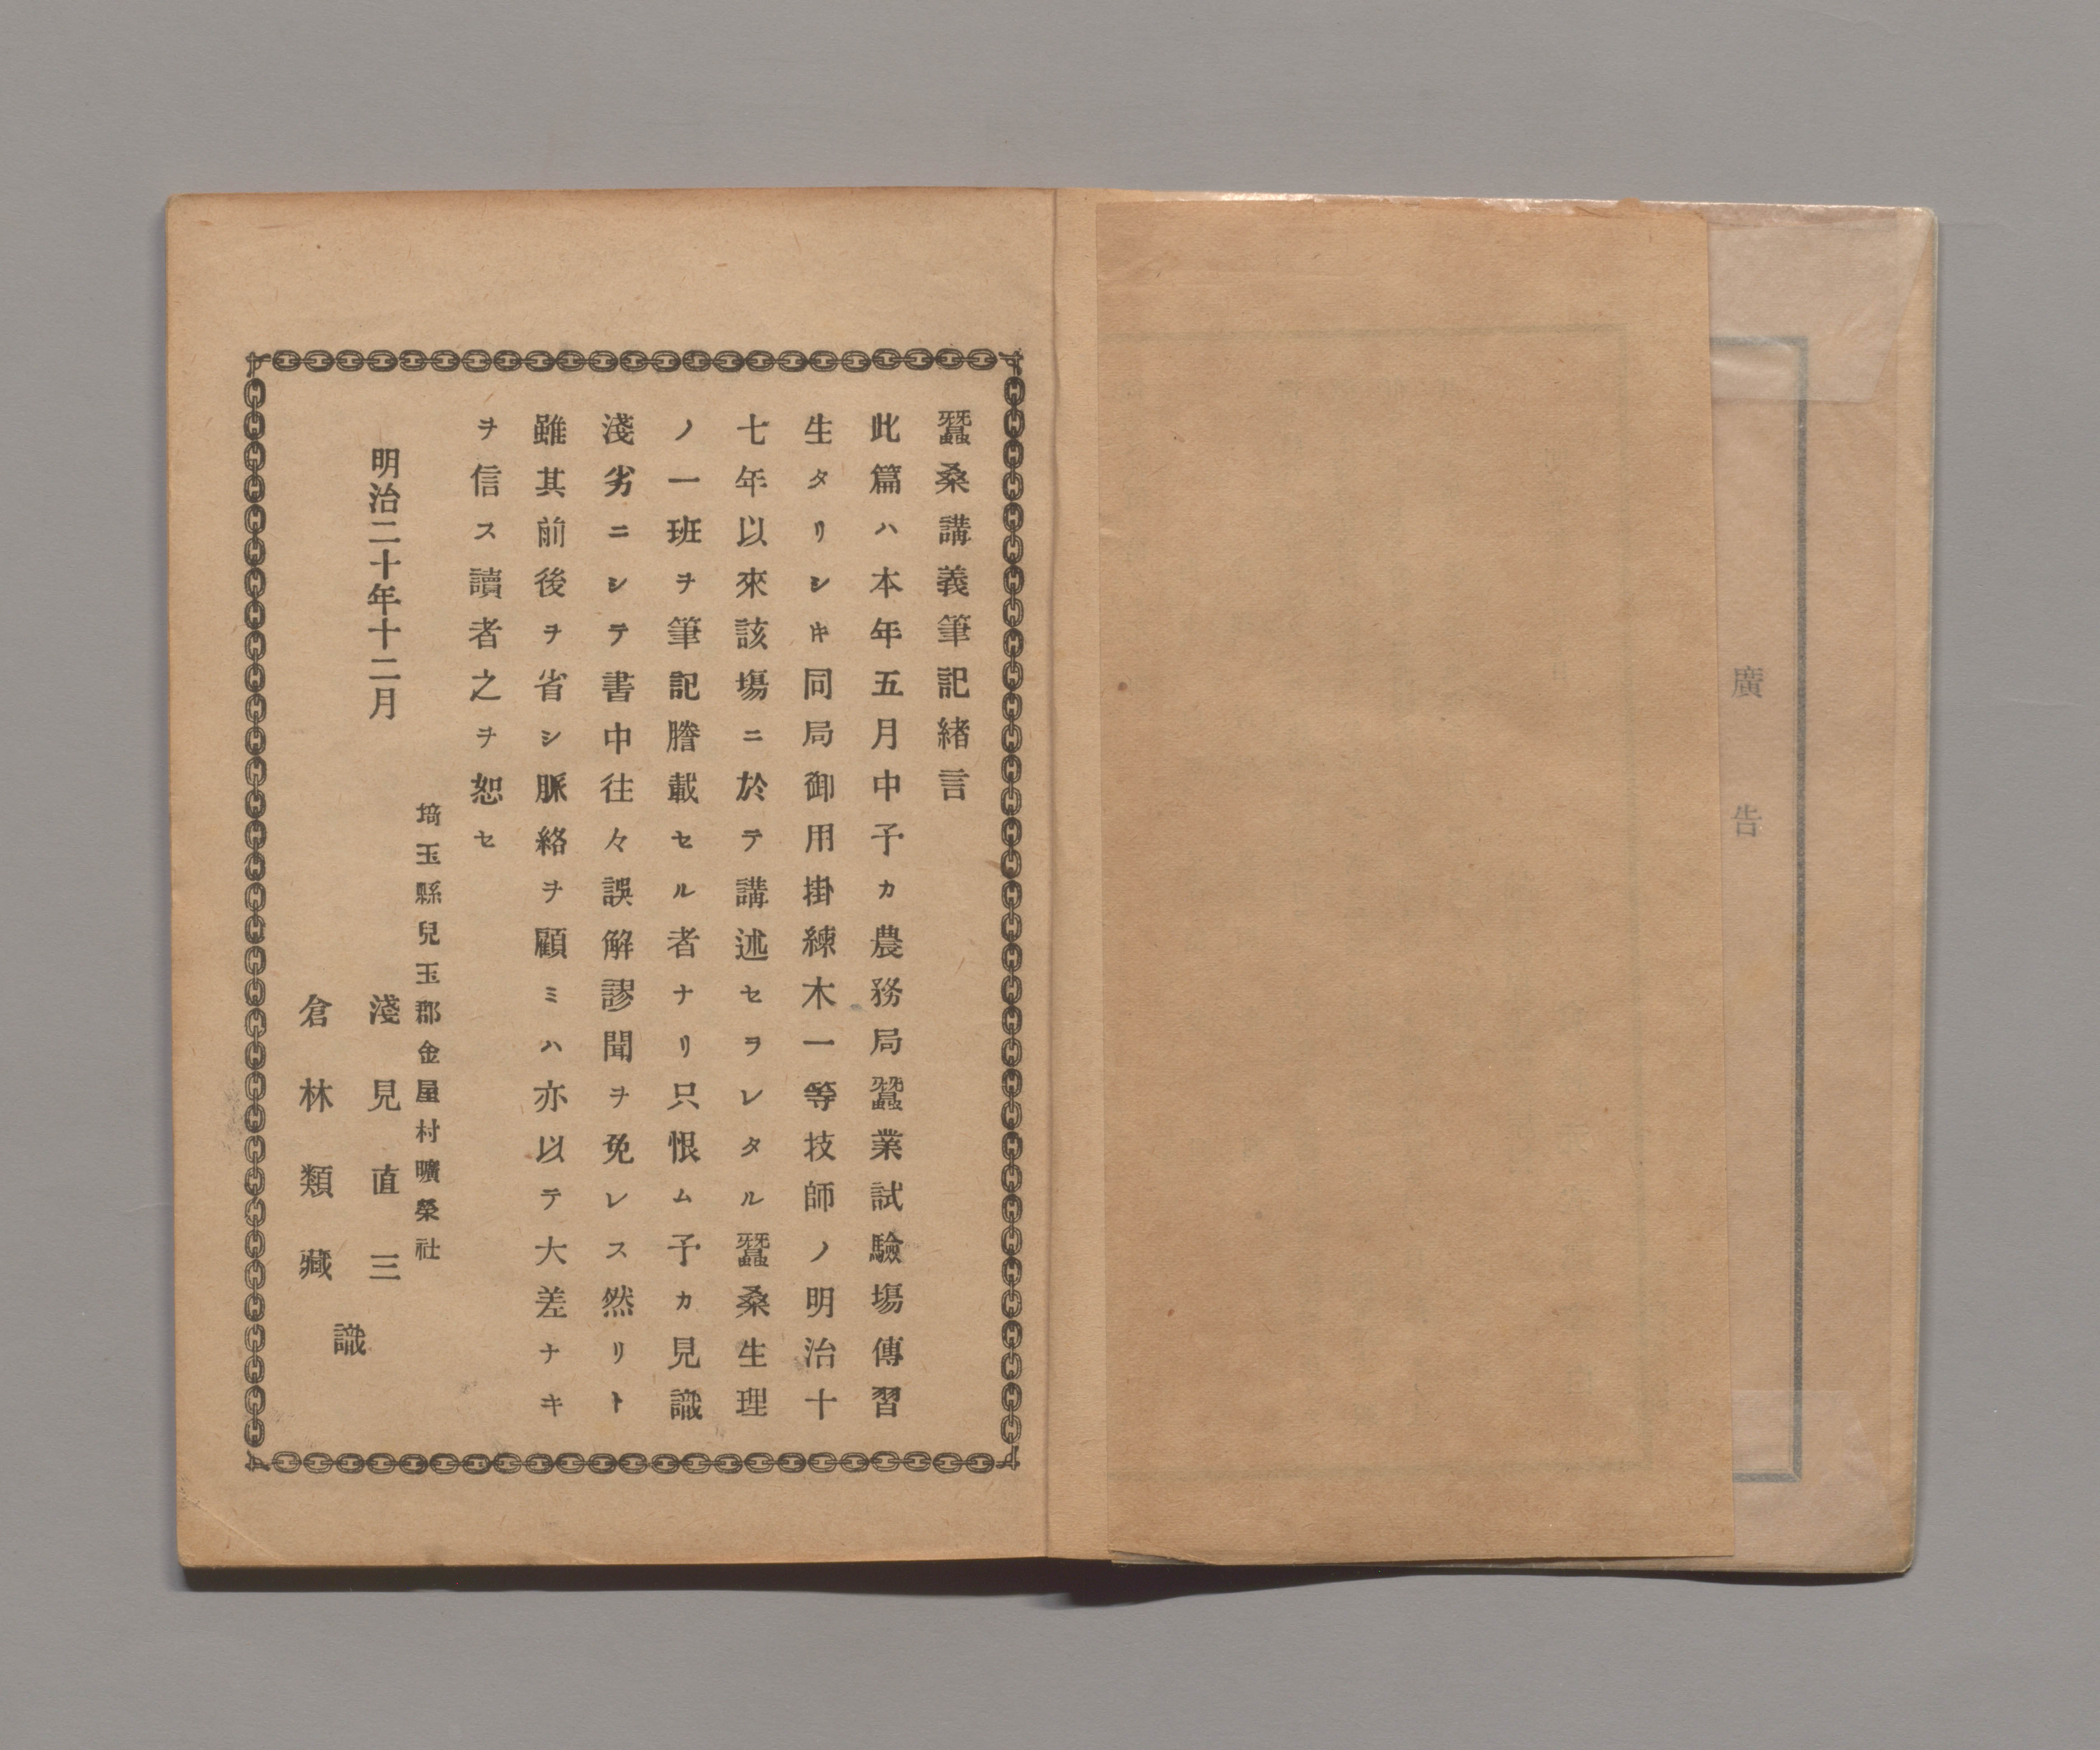 廣告
蠶桑講義筆記緒言
此篇ハ本年五月中予カ農務局蠶業試驗塲傳習
生タリシキ同局御用掛練木一等技師ノ明治十
七年以來該塲ニ於テ講述セヲレタル蠶桑生理
ノ一班ヲ筆記謄載セル者ナリ只恨ム予カ見識
淺劣ニシテ書中往々誤解謬聞ヲ免レス然リト
雖其前後ヲ省シ脈絡ヲ顧ミハ亦以テ大差ナキ
ヲ信ス讀者之ヲ恕セ
埼玉縣兒玉郡金屋村曠榮社
明治二十年十二月
淺見直三
倉林類藏
識